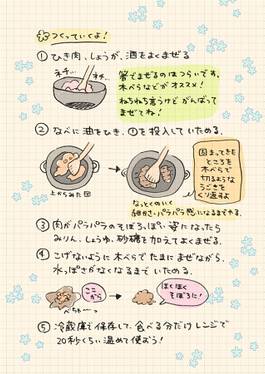 つくっていくよ！
① ひき肉、しょうが、酒をよくまぜる
ネチ…
ネチ…
箸でまぜるのはつらいです。
木べらなどがオススメ！
ねちねち言うけどがんばって
まぜてね！
② なべに油をひき、①を投入していためる。
上からみた図
なっとくのいく
細かさ・パラパラ感になるまでやる。
固まってきた
ところを
木べらで
切るような
うごきを
くり返すよ
③ 肉がパラパラのそぼろっぽい姿になったら
みりん、しょうゆ、砂糖を加えてよくまぜる。
④ こげないように木べらでたまにまぜながら、
水っぽさがなくなるまでいためる。
ここから
べちゃ〜っ
ほくほく
そぼろに！
⑤ 冷蔵庫で保存して、食べる分だけレンジで
20秒くらい温めて使おう！